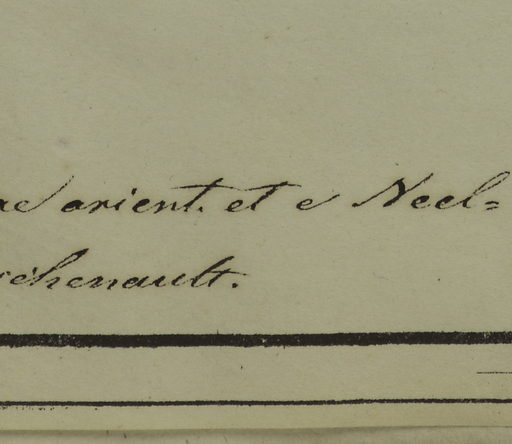 orient. et e Neel=
chenault.